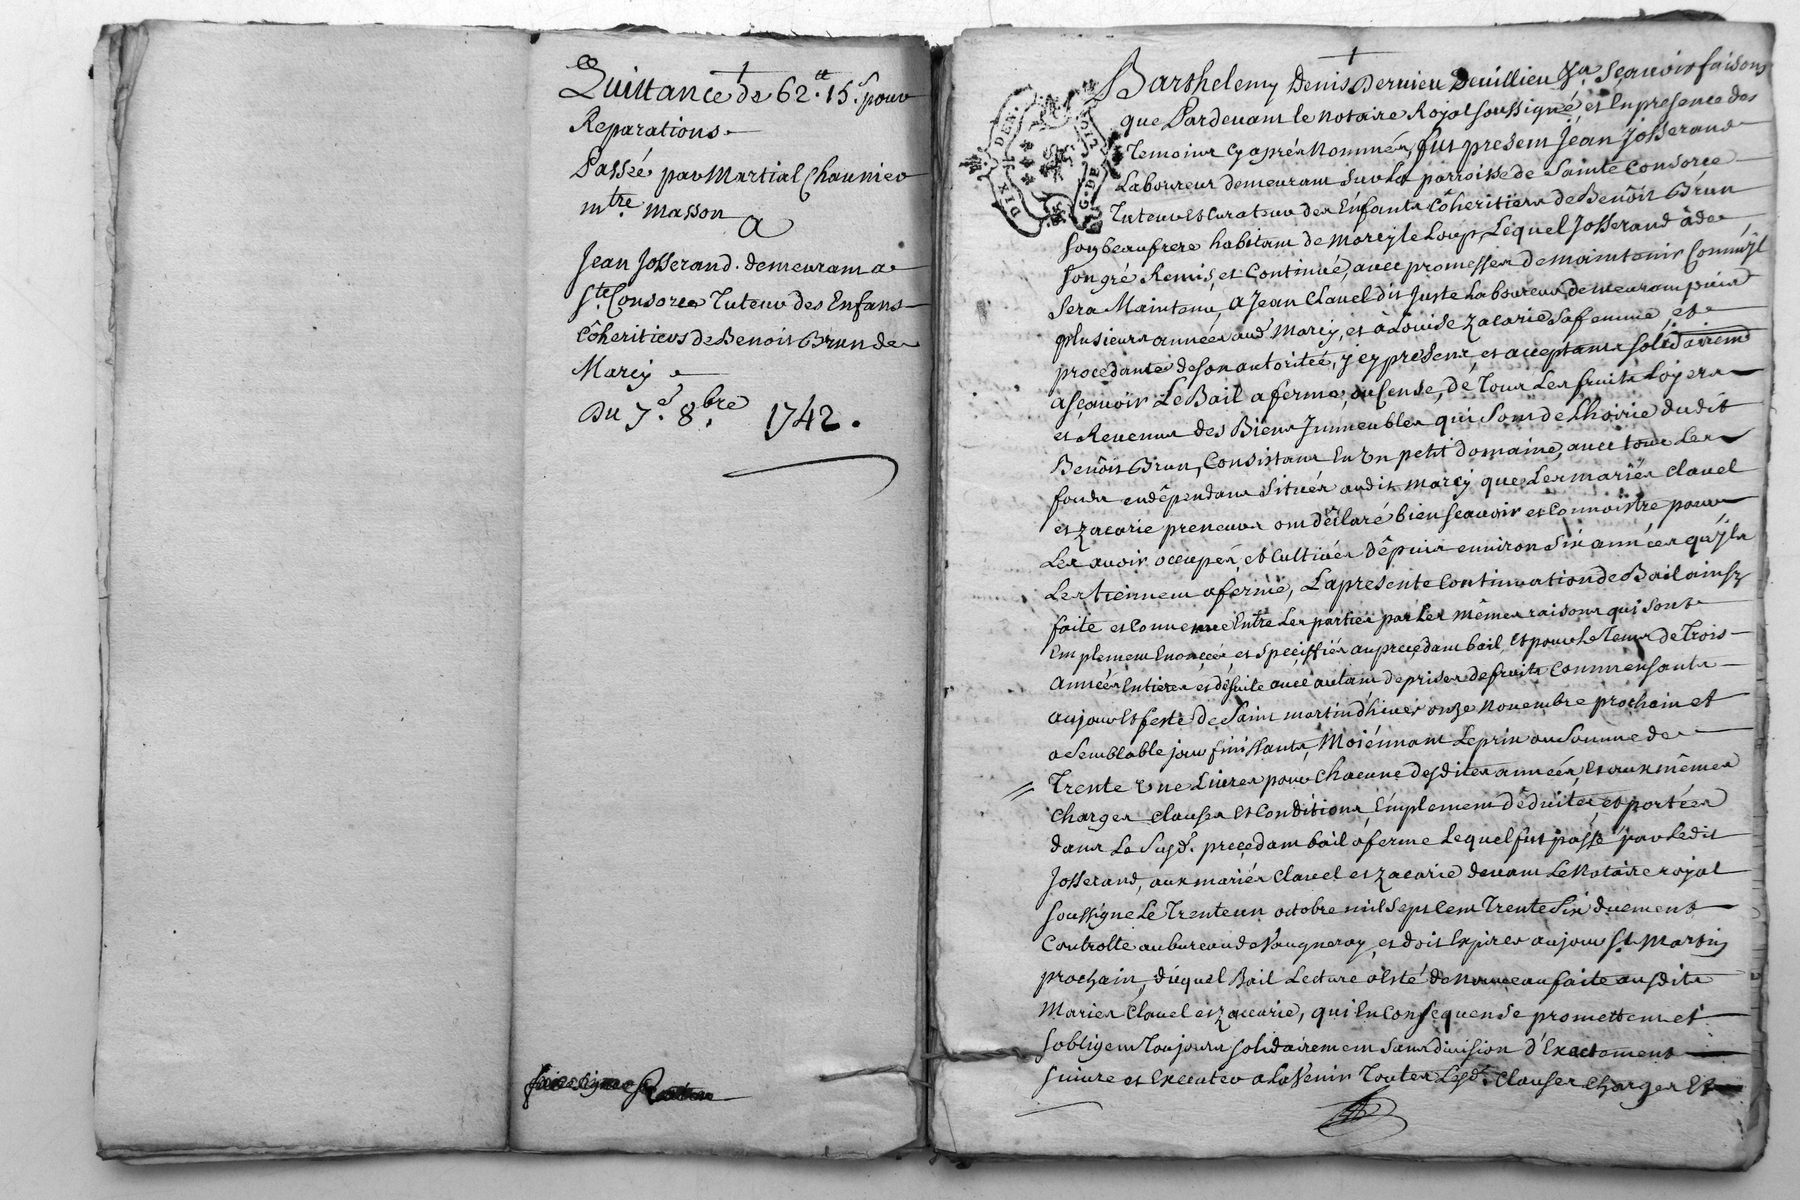 Quittance de 62.tt 15.s pour
Reparations.
Passée par Martial Chaunier
mtre. masson
A
Jean Josserand. demeurant a
Ste. Consorce Tuteur des Enfans
Cöheritiers de Benoist Brun de
Marcy
Du 7.e 8.bre 1742.
DIX DEN.
G. DE
Barthelemy Denis Dernieu Deuillieu Sçavoir faisons
que Pardevant le notaire Royal soussigné, et En presence des
Temoins cy aprés Nommés, fut present Jéan Josserand
Laboureur demeurant sur La parroisse de Sainte Consorce
Tuteur et Curateur des Enfants Côheritiers de Benôist Brun
son beaufrere habitant de Marcy le Loup, Lequel Josserand à de
son gré Remis, et Continué, avec promesses de maintenir Comme jl
sera Maintenu, A Jean Clavel dit Juste Laboureur, demeurant puis
plusieurs années aud. Marcy, et à Loüise Zacarie sa femme, et
procedante de son autoritée, jcy presens, et acceptants solidairemt.
a sçavoir Le Bail a ferme, ou Cense, de Tous Les fruits Loyers
et Revenus des Biens Jmmeubles qui Sont de Lhoirie dudit
Benôist Brun, Consistans En Un petit domaine, avec tous Les
fonds endêpendans Situés audit Marcy que Les mariés Clavel
et Zacarie preneurs ont dêclaré bien Sçavoir et Connoistre pour
Les avoir occupés, et Cultivés Dêpuis environ Six années qu'jls
Les tiennent a fermé, La presente Continuation de Bail ainsy
faite et Convenue Entre Les parties par Les mêmes raisons qui sont
Emplement Enoncées et Specifiés au precedant bail, Et pour Le Tems de Trois
Années Entieres et de suite avec autant de prises de fruits Commensants
au jour Et feste de Saint martin d'hiver onze Novembre prochain et
a Semblable jour finissants, Moïénnant Le prix ou Somme de
Trente Une Livres pour Chacune desdites années, Et aux mêmes
charges Clauses Et Conditions, Emplement Dêduites, et portées
dans Le Susd. precedant bail a ferme Lequel fut passé par Ledit
Josserand, aux mariés Clavel et Zacarie devant Le Notaire royal
soussigne Le Trente un octobre mil Sept Cent Trente Six duement
Controllé au bureau de Vaugneray, et doit Expirer au jour St. Martin
prochain, düquel Bail Lecture à Esté de Nouveau faite ausdits
Mariés Clavel et Zaccarie, qui En Consequense promettent et
sobligent Toujours solidairement sans division d'Exactement
suivre et Executer a Lavenir Toutes Lesd. Clauses charges Et